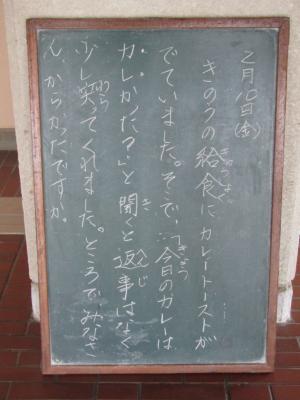 2月10日(金)
きのうの給食(きゅうしょく)に カレートーストが
でていました。そこで、…「今日(きょう)のカレーは
カレかだ?」と聞(き)くと返事(へんじ)はなく
少し笑(わら)ってくれました。ところでみなさ
ん、からかったですか。